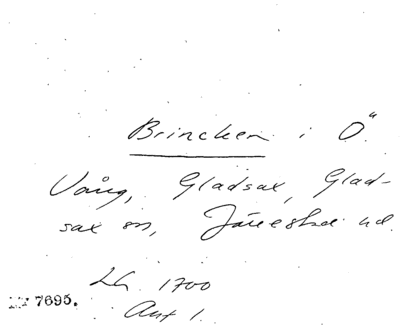 Brincken i Ö.
Vång, Gladsax, Glad-
sax sn, Järrestad hd.
LG 1700
Avt 1.
7695.